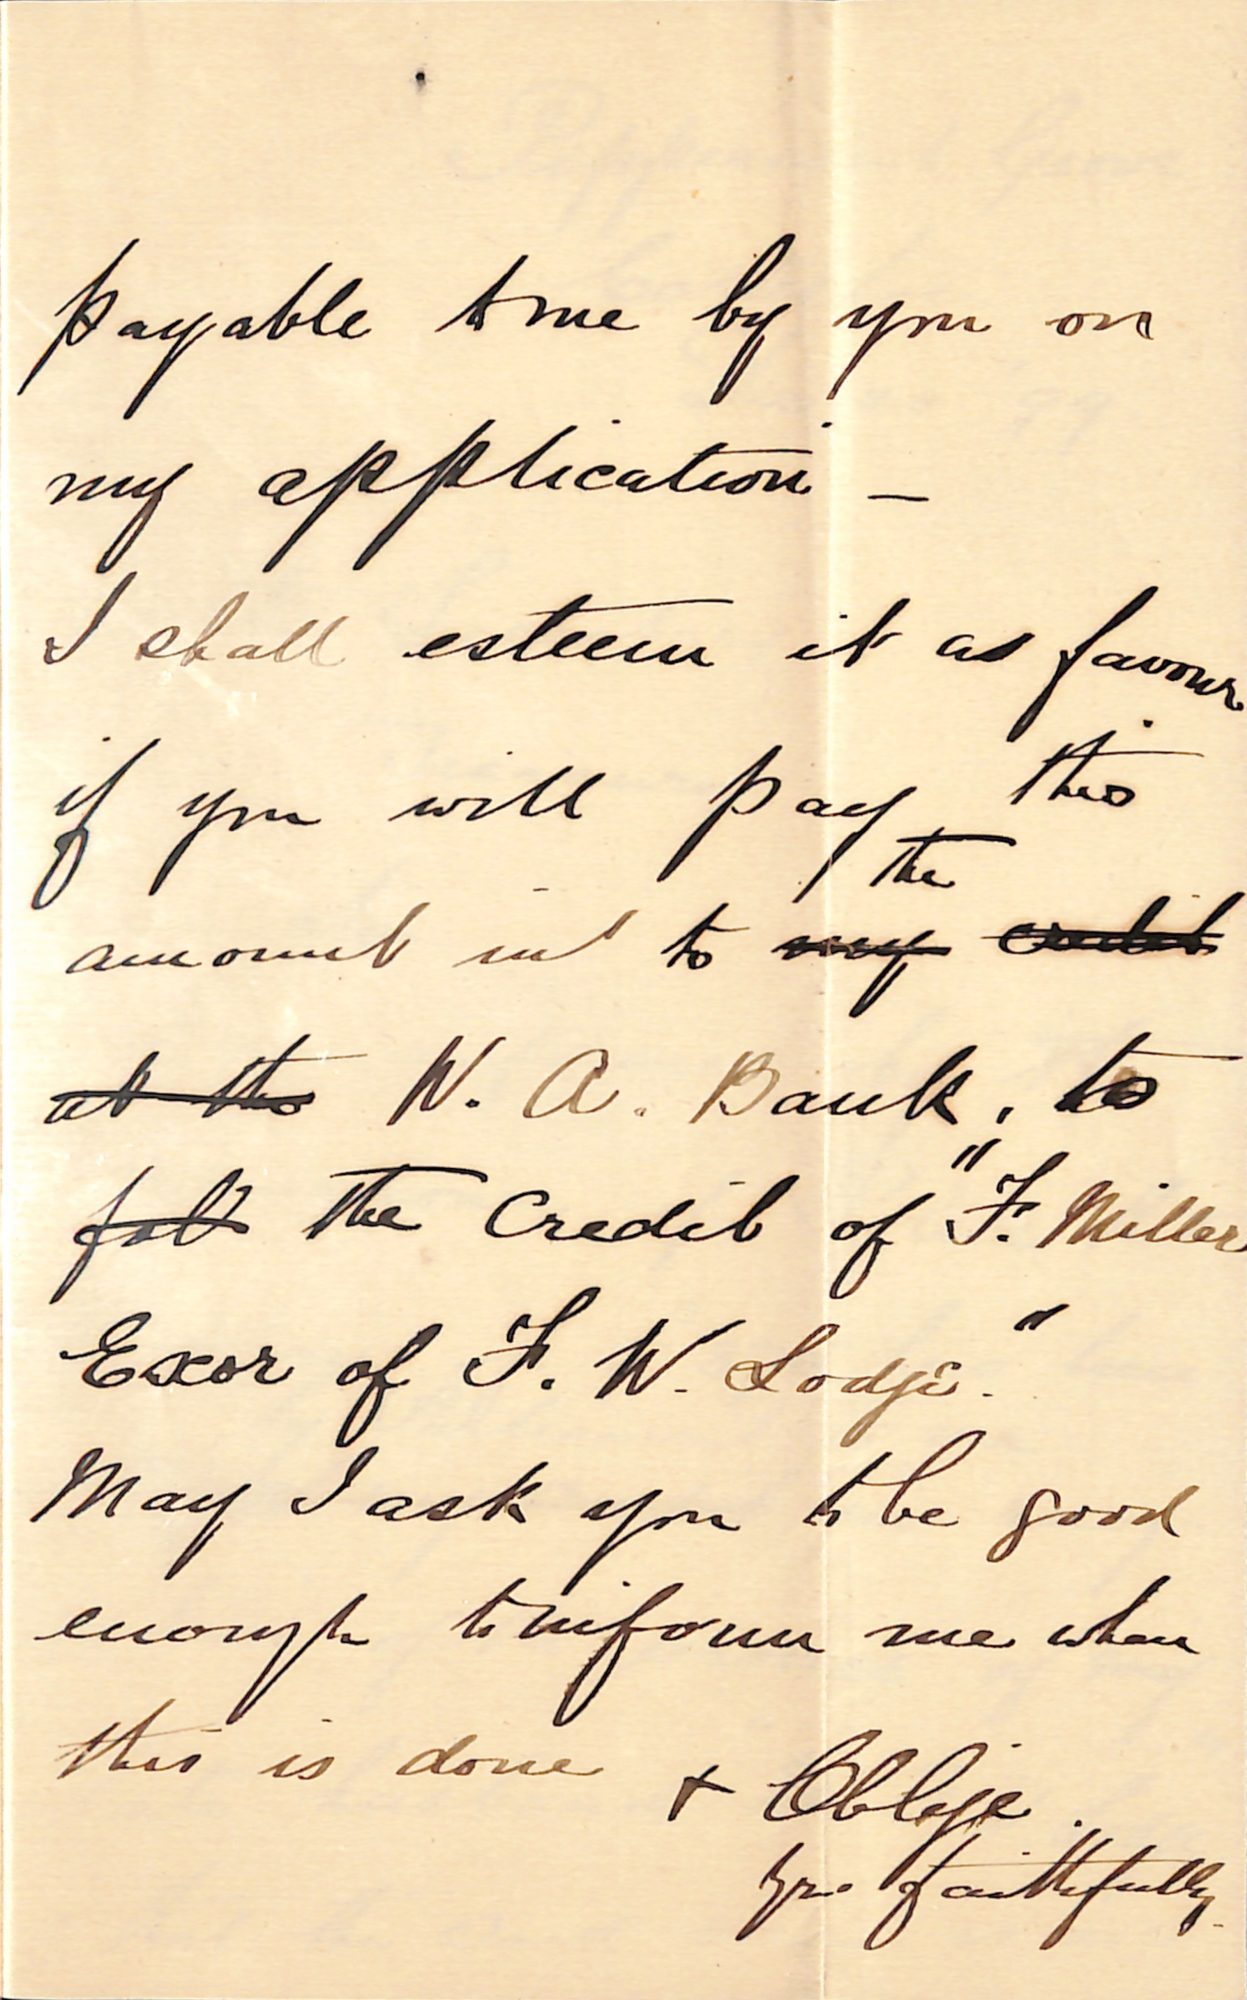 payable to me by you on
my application —
I shall esteem it as favour
if you will pay this
the
amount in to my credit
at the W. A. Bank. to
the Credit of "F. Miller
Exor of F. W. Lodge."
May I ask you to be good
enough to inform me when
this is done + Oblige.
Yrs faithfully